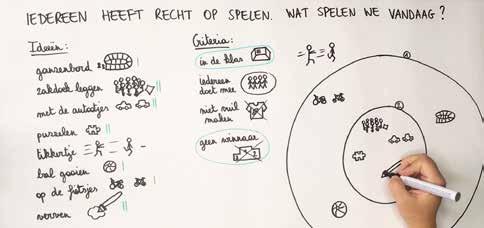 IEDEREEN HEEFT RECHT OP SPELEN. WAT SPELEN WE VANDAAG?
Ideeën:
ganzenbord
zakdoek leggen
met de autootjes
puzzelen
tikkertje
bal gooien
op de fietsjes
verven
Criteria:
in de klas
iedereen
doet mee
niet vuil
maken
geen winnaar